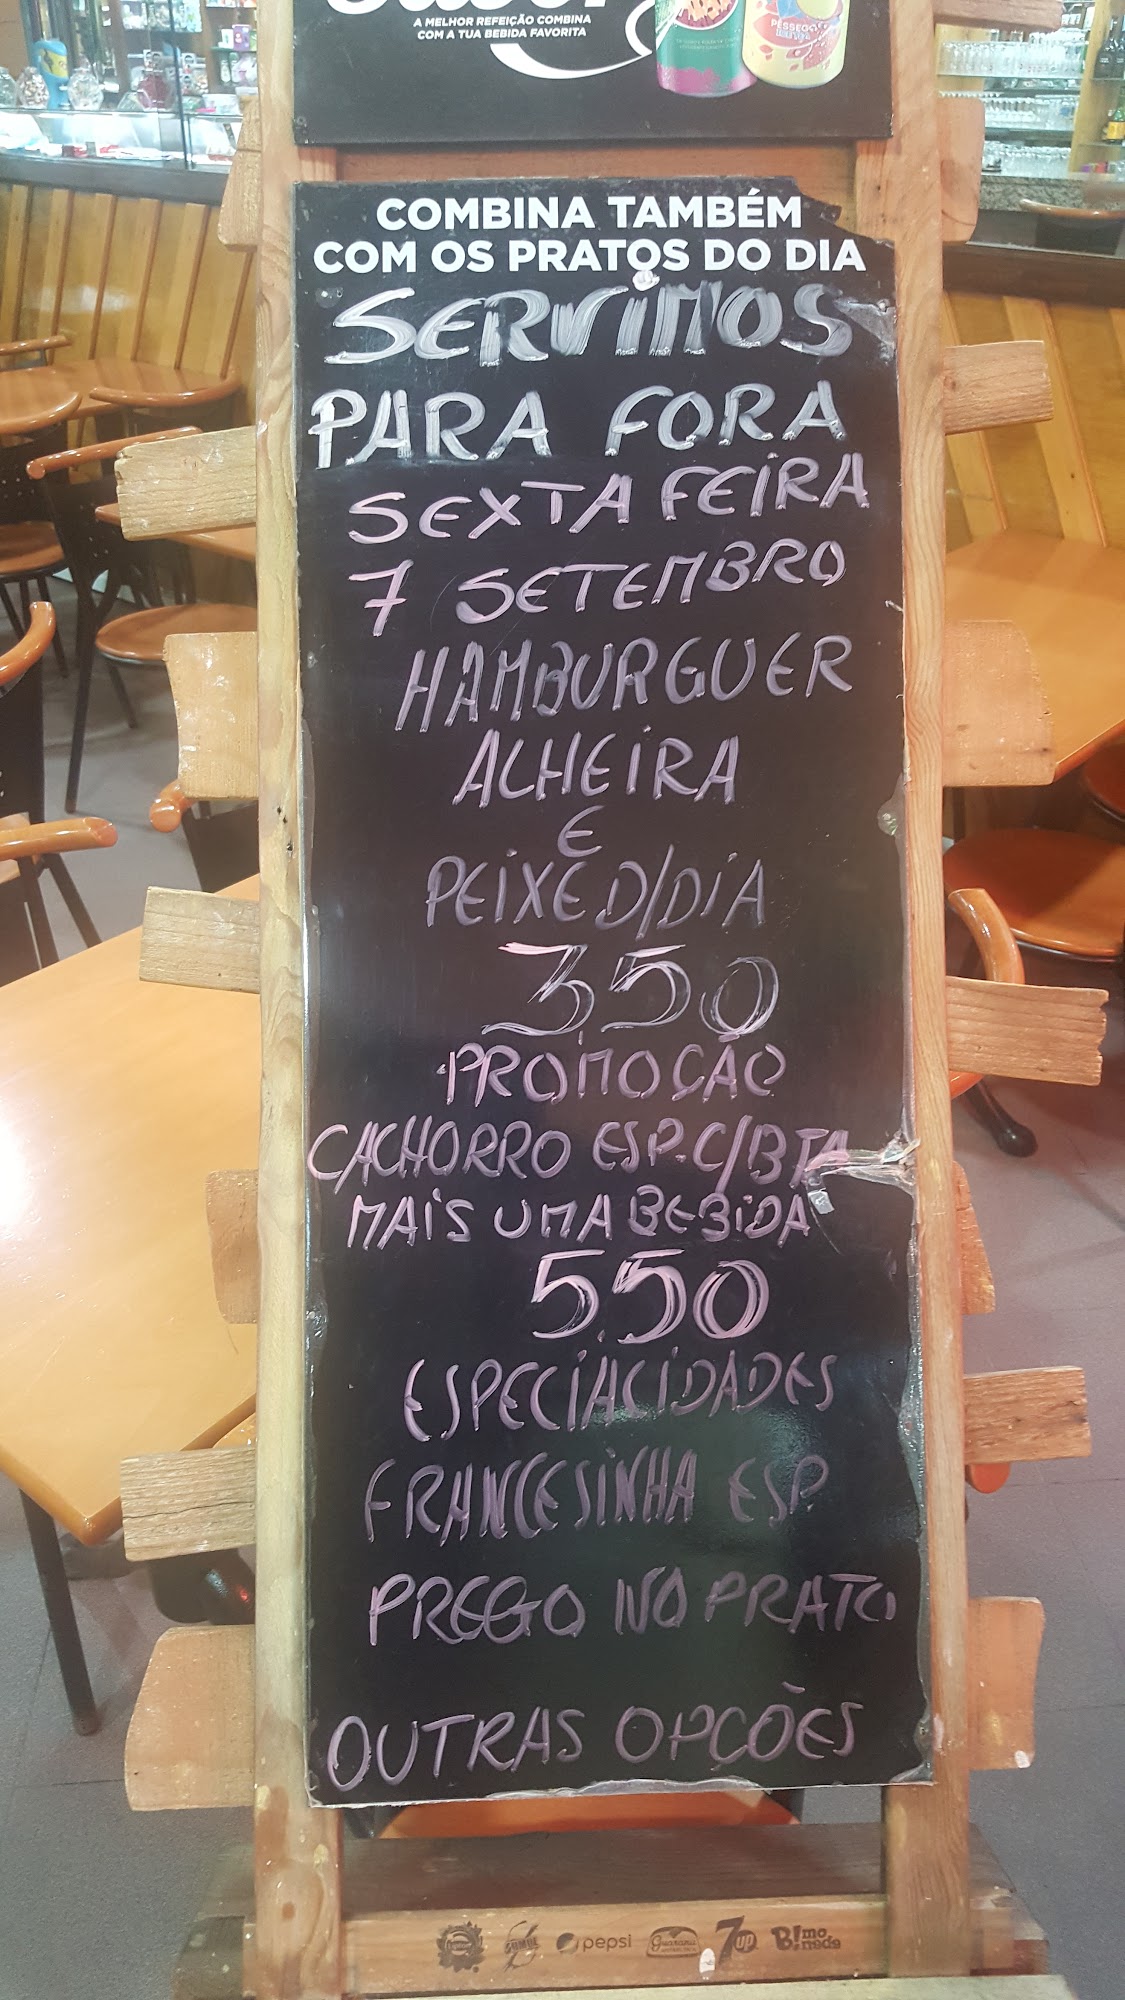 A MELHOR REFEIÇÃO COMBINA
COM A TUA BEBIDA FAVORITA
PÊSSEGO
COMBINA TAMBÉM
COM OS PRATOS DO DIA
SERVIMOS
PARA FORA
SEXTA FEIRA
7 SETEMBRO
HAMBURGUER
ALHEIRA
E
PEIXE D/DIA
3.50
PROMOÇÃO
CACHORRO ESP. C/BTA
MAIS UMA BEBIDA
5.50
ESPECIALIDADES
FRANCESINHA ESP
PREGO NO PRATO
OUTRAS OPÇÕES
pepsi
Guaraná
7UP
B!monada